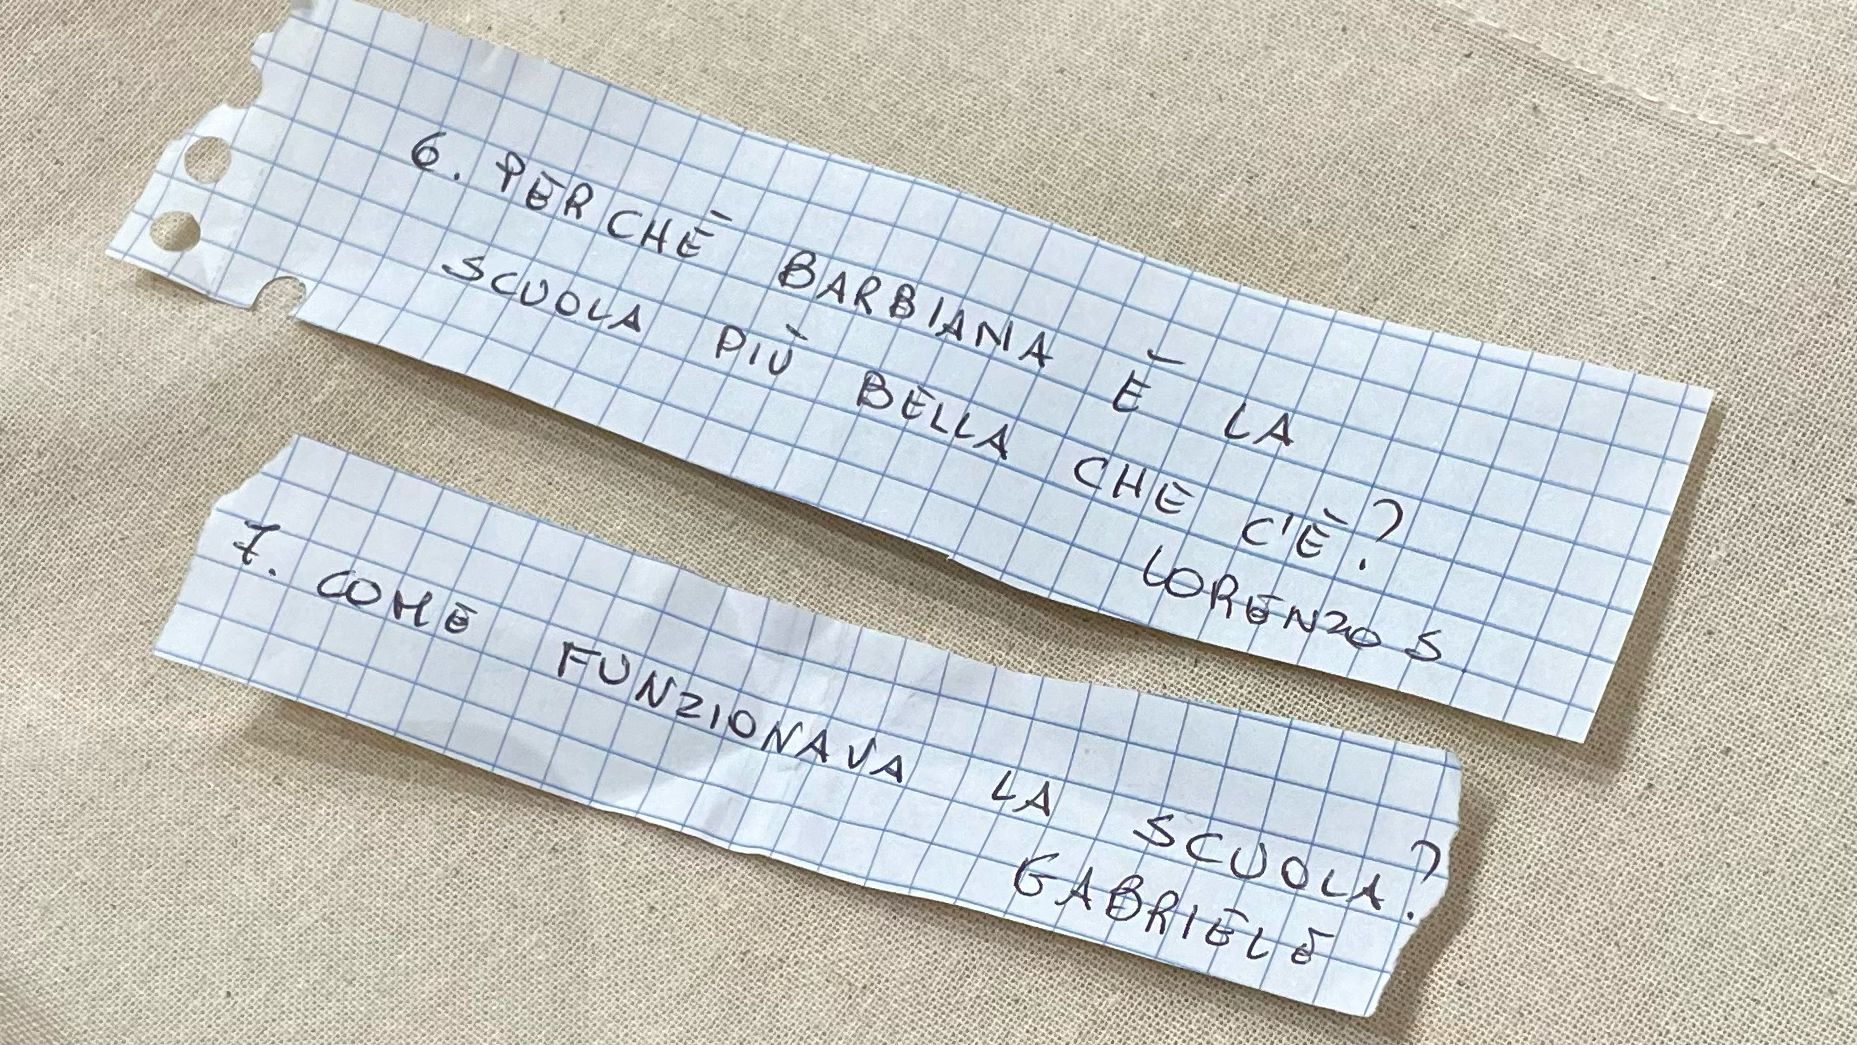 6. PERCHÈ BARBIANA È LA
SCUOLA PIÙ BELLA CHE C'È?
LORENZO S
7. COME FUNZIONAVA LA SCUOLA?
GABRIELE